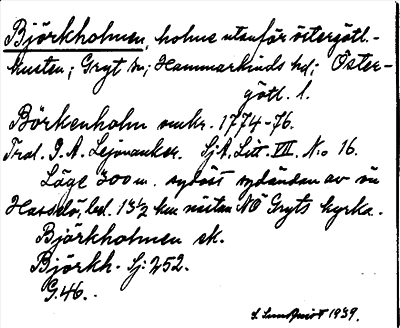 Björkholmen, holme utanför östergötl.-
kusten; Gryt sn; Hammarkinds hd; Öster-
götl. l.
Börkenholm omkr. 1774-76.
Trol. J. A. Lejonanker. Sj.A. Litt. VII. N:o 16.
Läge 300 m. sydöst sydändan av ön
Hasselö, bel. 13½ km nästan NO Gryts kyrka.
Björkholmen ek.
Björkh. Sj: 252.
G.46.
S. Lundqvist 1939.